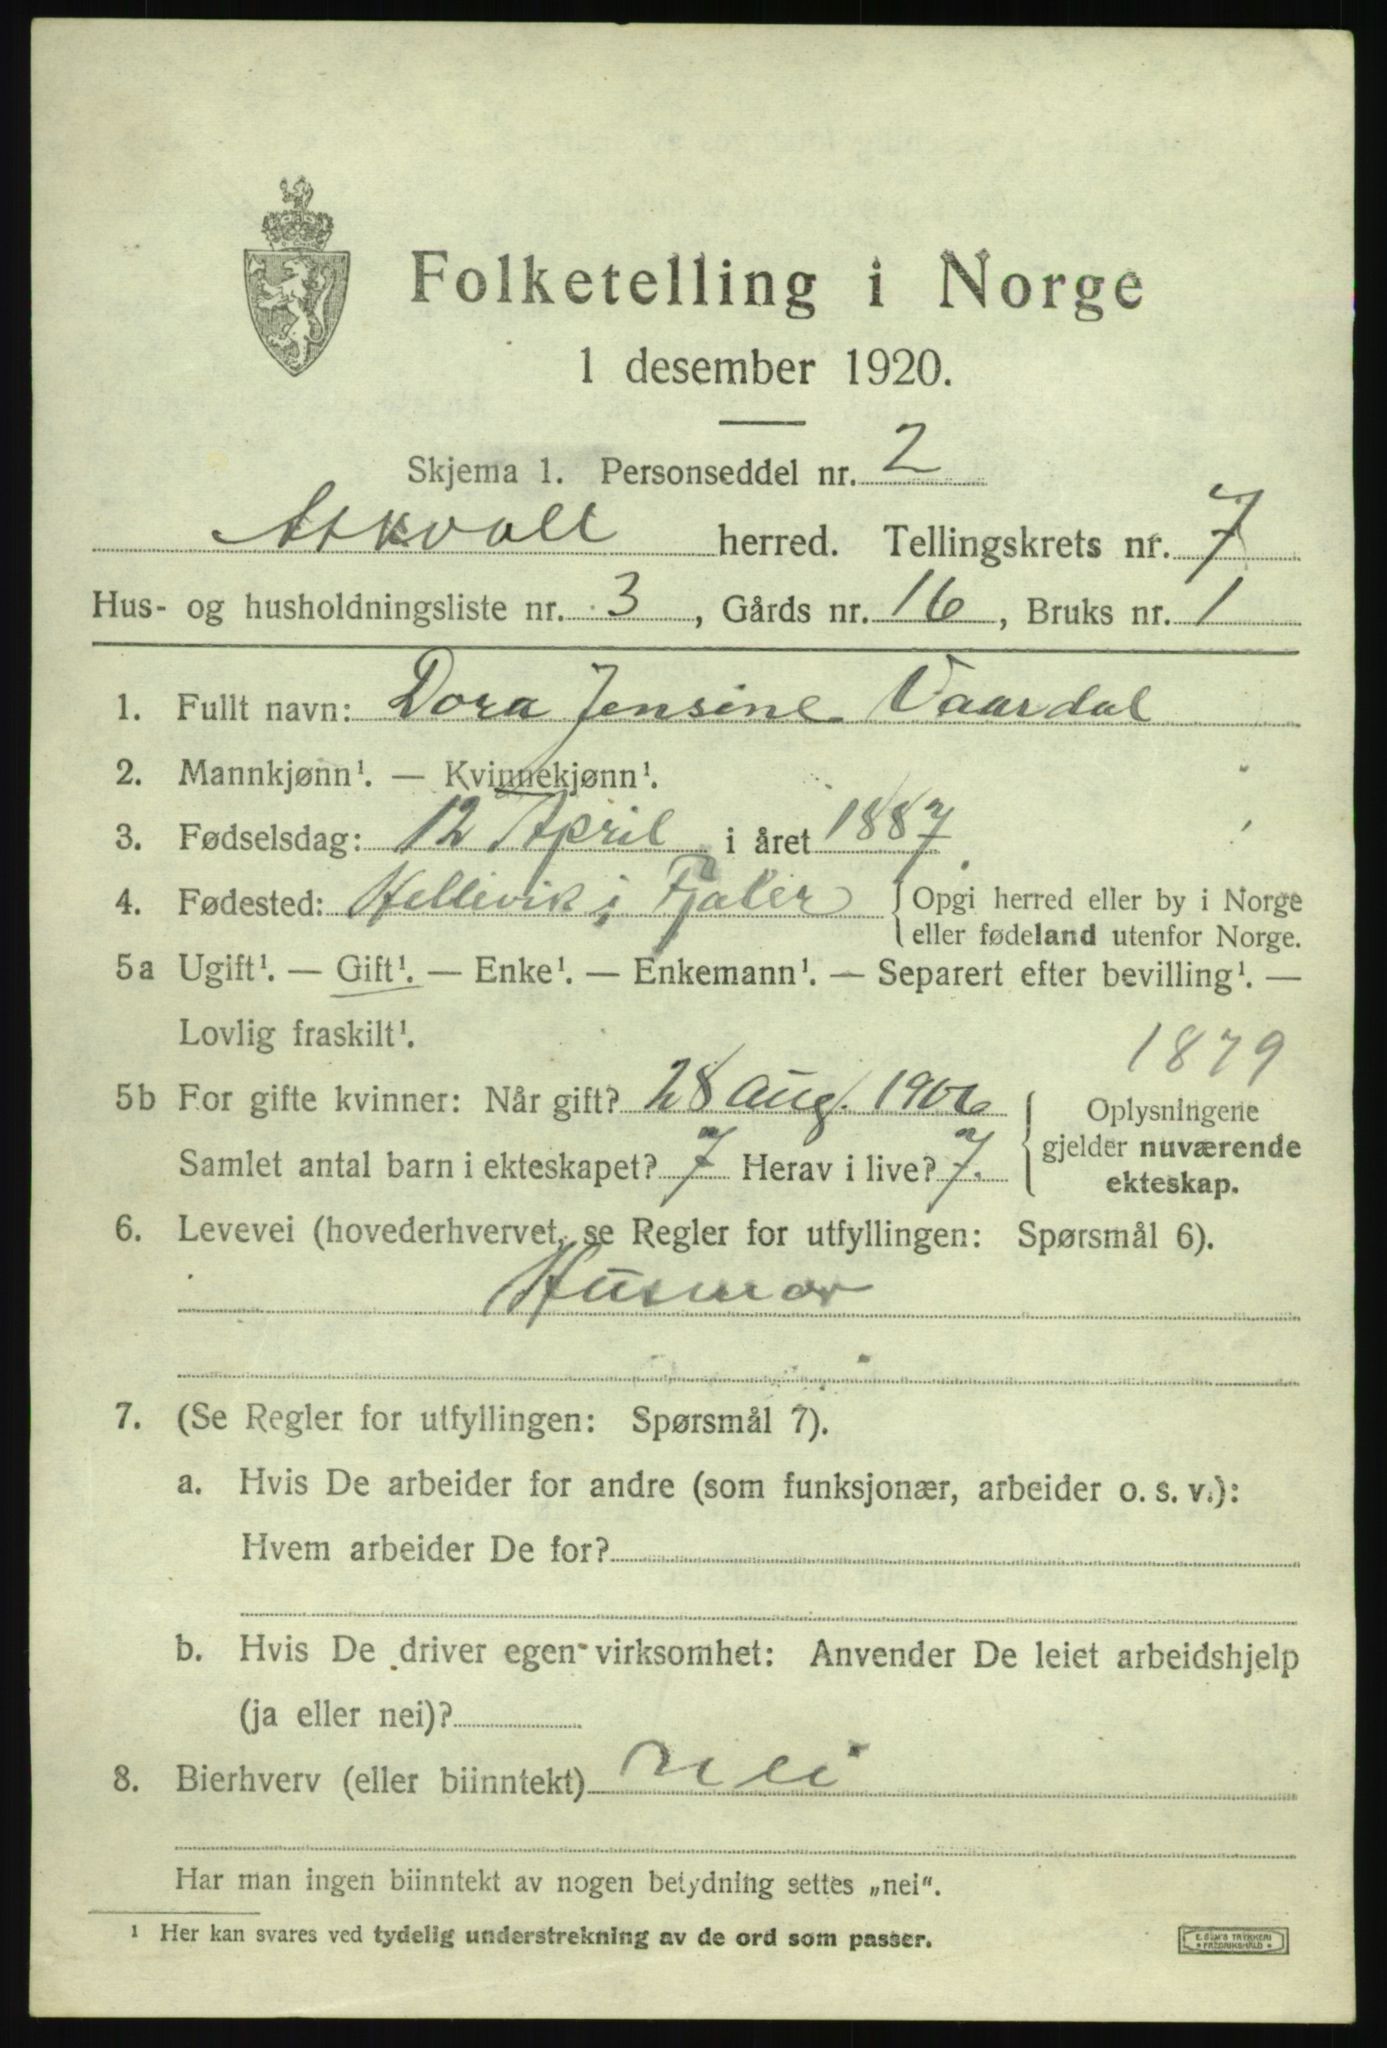 Folketelling i Norge
1 desember 1920.
Skjema 1. Personseddel nr. 2
Askvoll herred. Tellingskrets nr. 7
Hus- og husholdningsliste nr. 3, Gårds nr. 16, Bruks nr. 1
1. Fullt navn: Dora Jensine Vaardal
2. Mannkjønn¹. — Kvinnekjønn¹.
3. Fødselsdag: 12 April i året 1887.
4. Fødested: Hellevik i Fjaler { Opgi herred eller by i Norge
eller fødeland utenfor Norge.
5a Ugift¹. — Gift¹. — Enke¹. — Enkemann¹. — Separert efter bevilling¹. —
Lovlig fraskilt¹.
1879
5b For gifte kvinner: Når gift? 28 Aug. 1906 { Oplysningene
gjelder nuværende
ekteskap.
Samlet antal barn i ekteskapet? 7 Herav i live? 7.
6. Levevei (hovederhvervet, se Regler for utfyllingen: Spørsmål 6).
Husmor
7. (Se Regler for utfyllingen: Spørsmål 7).
a. Hvis De arbeider for andre (som funksjonær, arbeider o. s. v.):
Hvem arbeider De for?
b. Hvis De driver egen virksomhet: Anvender De leiet arbeidshjelp
(ja eller nei)?
8. Bierhverv (eller biinntekt) Nei
Har man ingen biinntekt av nogen betydning settes „nei“.
¹ Her kan svares ved tydelig understrekning av de ord som passer.
E. SEM'S TRYKKERI
FREDRIKSHALD